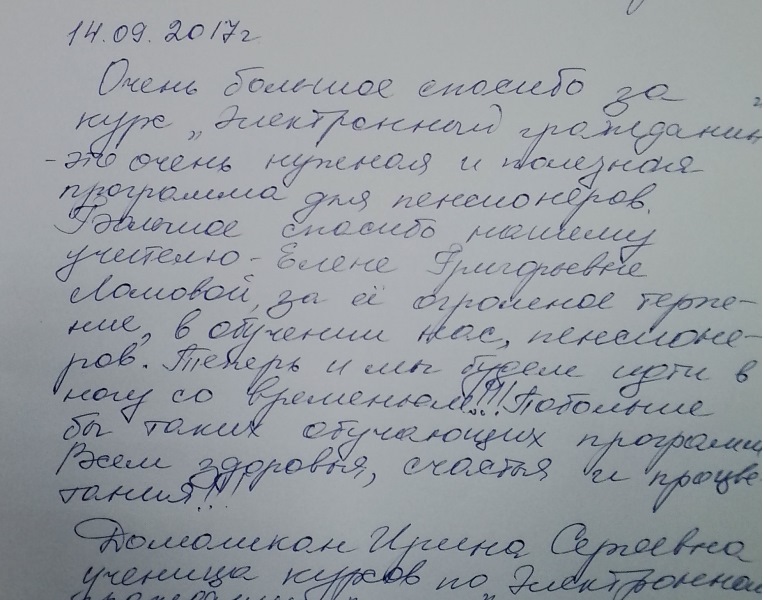 14.09.2017г
Очень большое спасибо за
курс „Электронный гражданин
- это очень нужная и полезная
программа для пенсионеров.
Большое спасибо нашему
учителю - Елене Григорьевне
Ломовой, за её огромное терпе-
ние, в обучении нас, пенсионе-
ров. Теперь и мы будем идти в
ногу со временем!!! Побольше
бы таких обучающих программ
Всем здоровья, счастья и процве-
тания!!!
Домашкан Ирина Сергеевна
ученица курсов по „Электронной